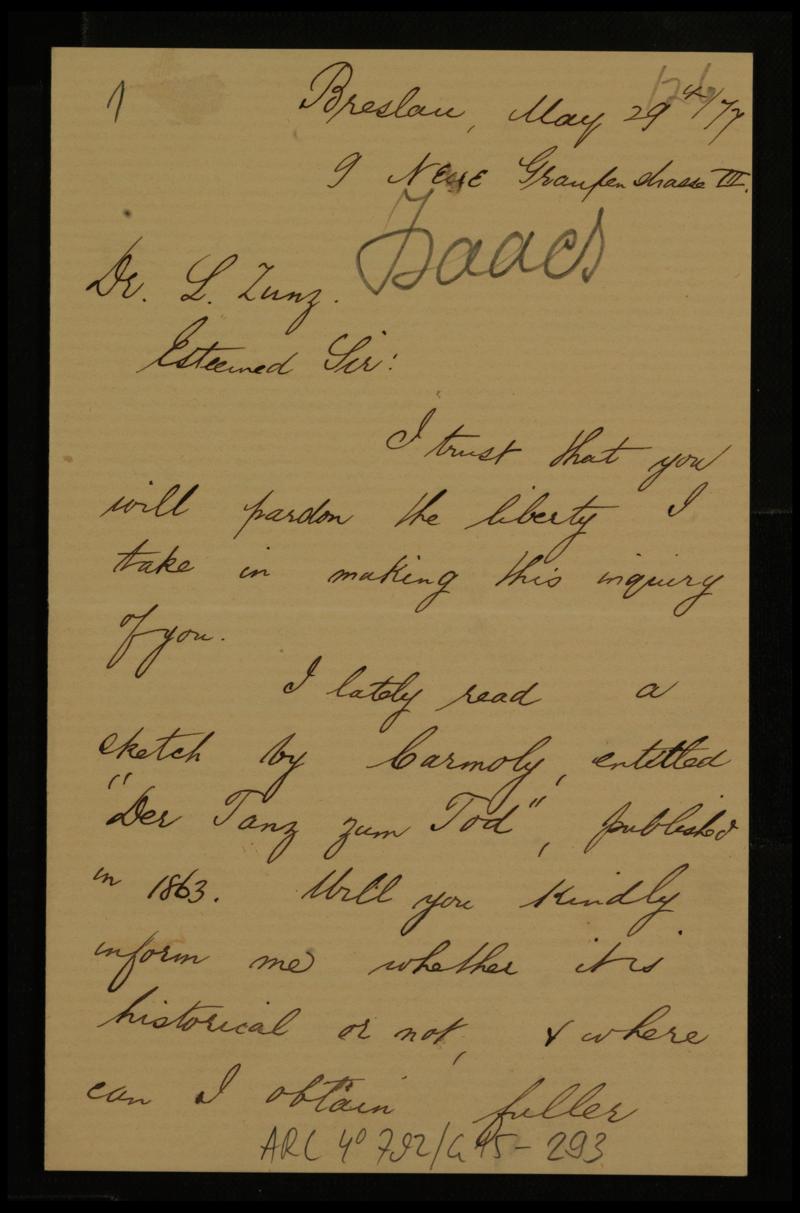 1
Breslau, May 29th/77
9 Neue Graupenstrasse III.
Isaacs
Dr. L. Zunz.
Esteemed Sir:
I trust that you
will pardon the liberty I
take in making this inquiry
of you.
I lately read a
sketch by Carmoly, entitled
"Der Tanz zum Tod", published
in 1863. Will you kindly
inform me whether it is
historical or not, & where
can I obtain fuller
ARC 4° 792/G15-293